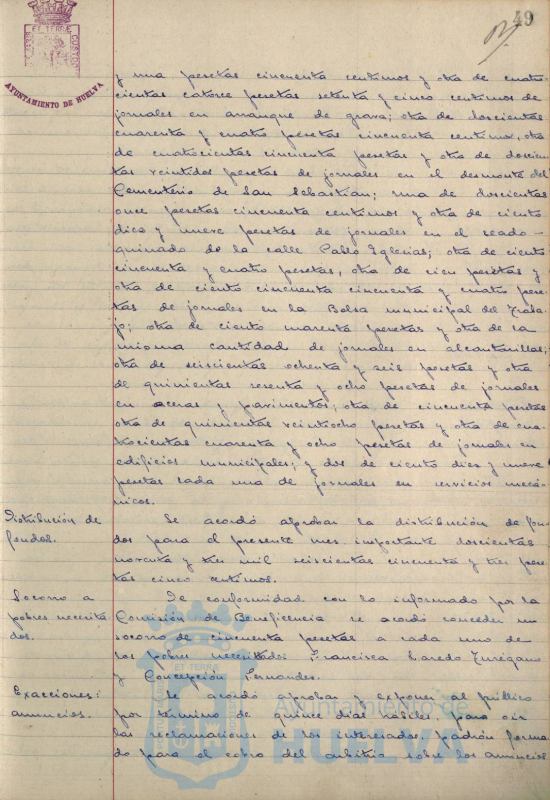 49
AYUNTAMIENTO DE HUELVA
y una pesetas cincuenta centimos y otra de cuatro
cientas catorce pesetas setenta y cinco centimos de
jornales en arranque de grava; otra de doscientas
cuarenta y cuatro pesetas cincuenta centimos, otra
de cuatrocientas cincuenta pesetas y otra de doscien
tas veintidos pesetas de jornales en el desmonte del
Cementerio de San Sebastian; una de doscientas
once pesetas cincuenta centimos y otra de ciento
diez y nueve pesetas de jornales en el reado-
quinado de la calle Pablo Iglesias; otra de ciento
cincuenta y cuatro pesetas, otra de cien pesetas y
otra de ciento cincuenta cincuenta y cuatro pese-
tas de jornales en la Bolsa municipal del Traba-
jo; otra de ciento cuarenta pesetas y otra de la
misma cantidad de jornales en alcantarillas;
otra de seiscientas ochenta y seis pesetas y otra
de quinientas sesenta y ocho pesetas de jornales
en aceras y pavimentos; otra de cincuenta pesetas
otra de quinientas veintiocho pesetas y otra de cua
trocientas cuarenta y ocho pesetas de jornales en
edificios municipales; y dos de ciento diez y nueve
pesetas cada una de jornales en servicios mecá-
nicos.
Distribución de
fondos.
Se acordó aprobar la distribución de fon
dos para el presente mes importante doscientas
noventa y tres mil seiscientas cincuenta y tres pese
tas cinco centimos.
Socorro a
pobres necesita
dos.
De conformidad con lo informado por la
Comisión de Beneficencia se acordó conceder un
socorro de cincuenta pesetas a cada uno de
los pobres necesitados Francisca Laredo
y Concepción Fernandez.
Exacciones:
anuncios.
Se acordó aprobar y exponer al público
por termino de quince dias habiles, para oir
las reclamaciones de los interesados, padrón forma
do para el cobro del arbitrio sobre los anuncios
Ayuntamiento de
HUELVA